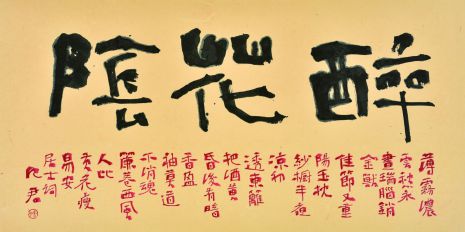 醉花陰
薄霧濃
雲愁永
晝瑞腦銷
金獸
佳節又重
陽玉枕
紗櫥半夜
涼初
透東籬
把酒黃
昏後有暗
香盈
袖莫道
不消魂
簾卷西風
人比
黃花瘦
易安
居士詞